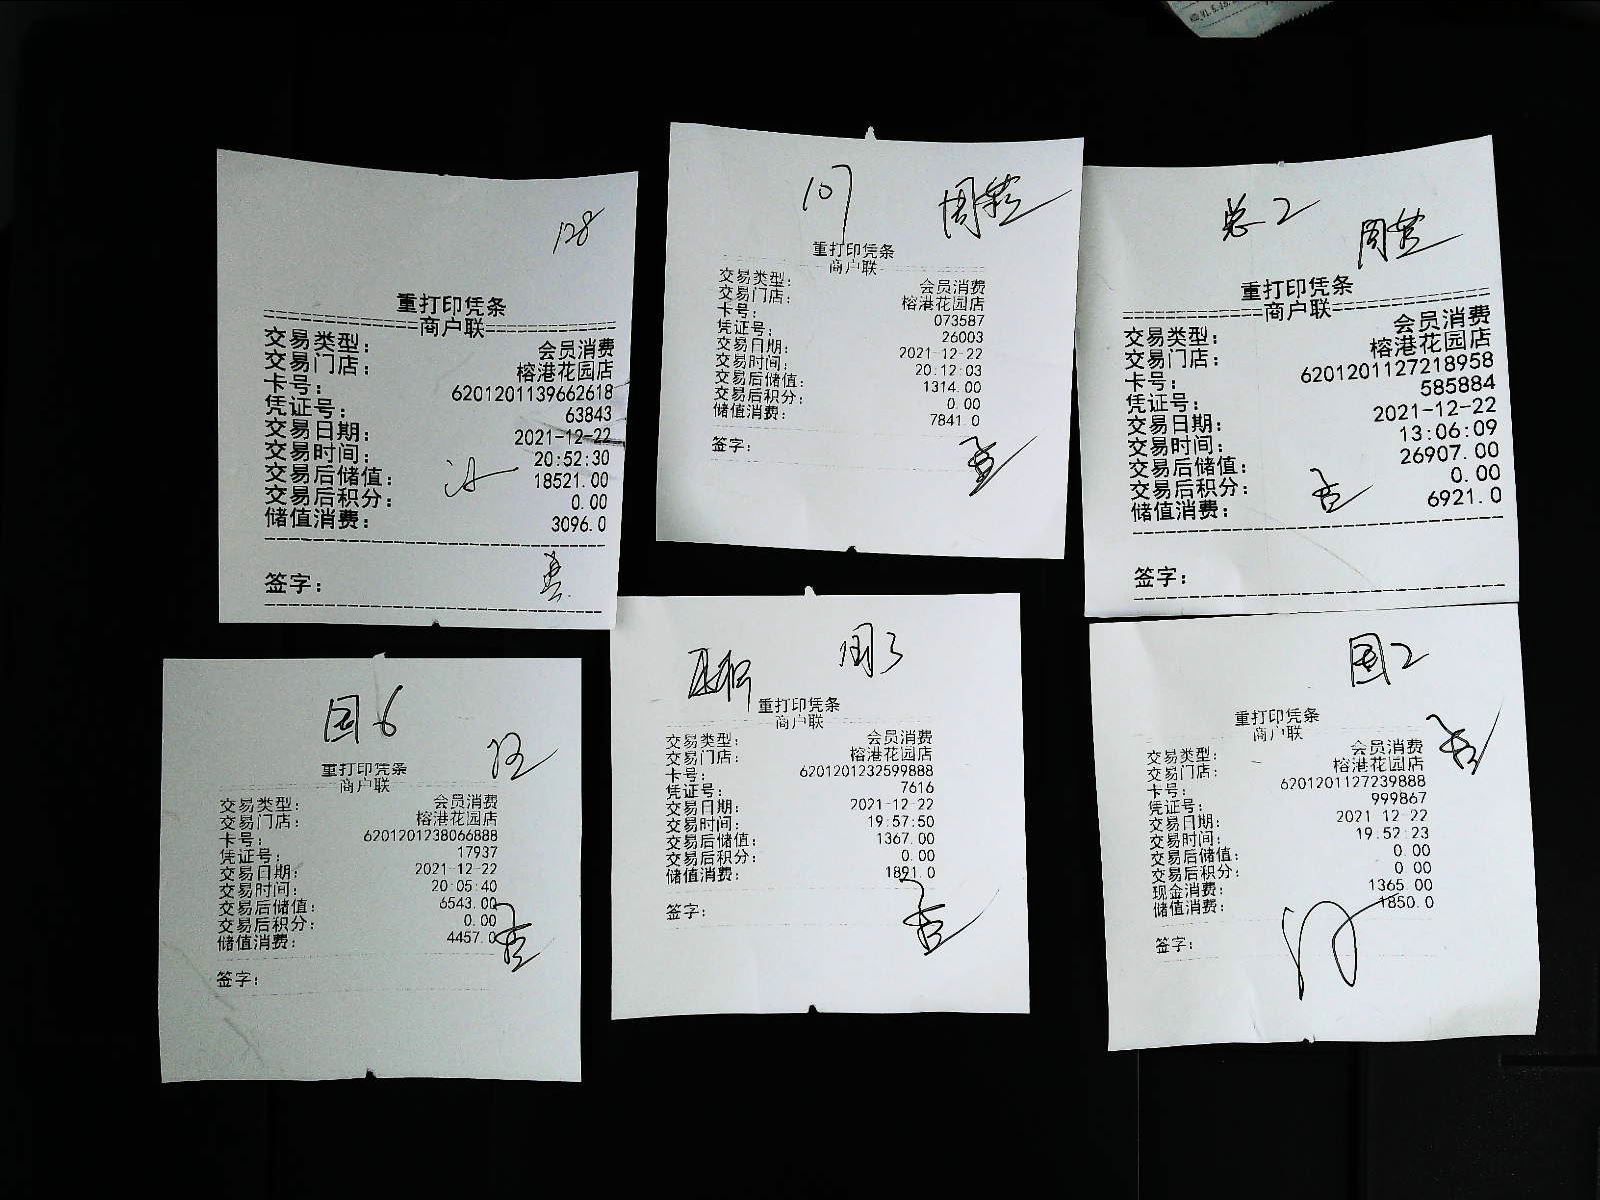 128
重打印凭条
商户联
交易类型： 会员消费
交易门店： 榕港花园店
卡号： 6201201139662618
凭证号： 63843
交易日期： 2021-12-22
交易时间： 20:52:30
交易后储值： 18521.00
交易后积分： 0.00
储值消费： 3096.0
签字：
107
重打印凭条
商户联
交易类型： 会员消费
交易门店： 榕港花园店
卡号： 073587
凭证号： 26003
交易日期： 2021-12-22
交易时间： 20:12:03
交易后储值： 1314.00
交易后积分： 0.00
储值消费： 7841.0
签字：
总2
重打印凭条
商户联
交易类型： 会员消费
交易门店： 榕港花园店
卡号： 6201201127218958
凭证号： 585884
交易日期： 2021-12-22
交易时间： 13:06:09
交易后储值： 26907.00
交易后积分： 0.00
储值消费： 6921.0
签字：
国6
重打印凭条
商户联
交易类型： 会员消费
交易门店： 榕港花园店
卡号： 6201201238066888
凭证号： 17937
交易日期： 2021-12-22
交易时间： 20:05:40
交易后储值： 6543.00
交易后积分： 0.00
储值消费： 4457.0
签字：
国3
重打印凭条
商户联
交易类型： 会员消费
交易门店： 榕港花园店
卡号： 6201201232599888
凭证号： 7616
交易日期： 2021-12-22
交易时间： 19:57:50
交易后储值： 1367.00
交易后积分： 0.00
储值消费： 1891.0
签字：
国2
重打印凭条
商户联
交易类型： 会员消费
交易门店： 榕港花园店
卡号： 6201201127239888
凭证号： 999867
交易日期： 2021-12-22
交易时间： 19:52:23
交易后储值： 0.00
交易后积分： 0.00
现金消费： 1365.00
储值消费： 1850.0
签字：